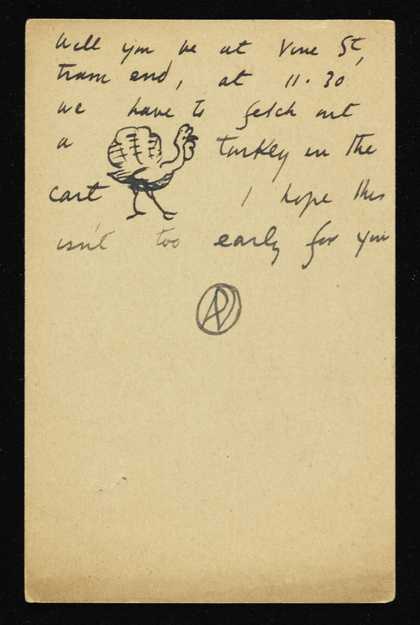 Will you be at Vine St,
tram end, at 11.30
we have to fetch out
a turkey in the
cart I hope this
isn't too early for you